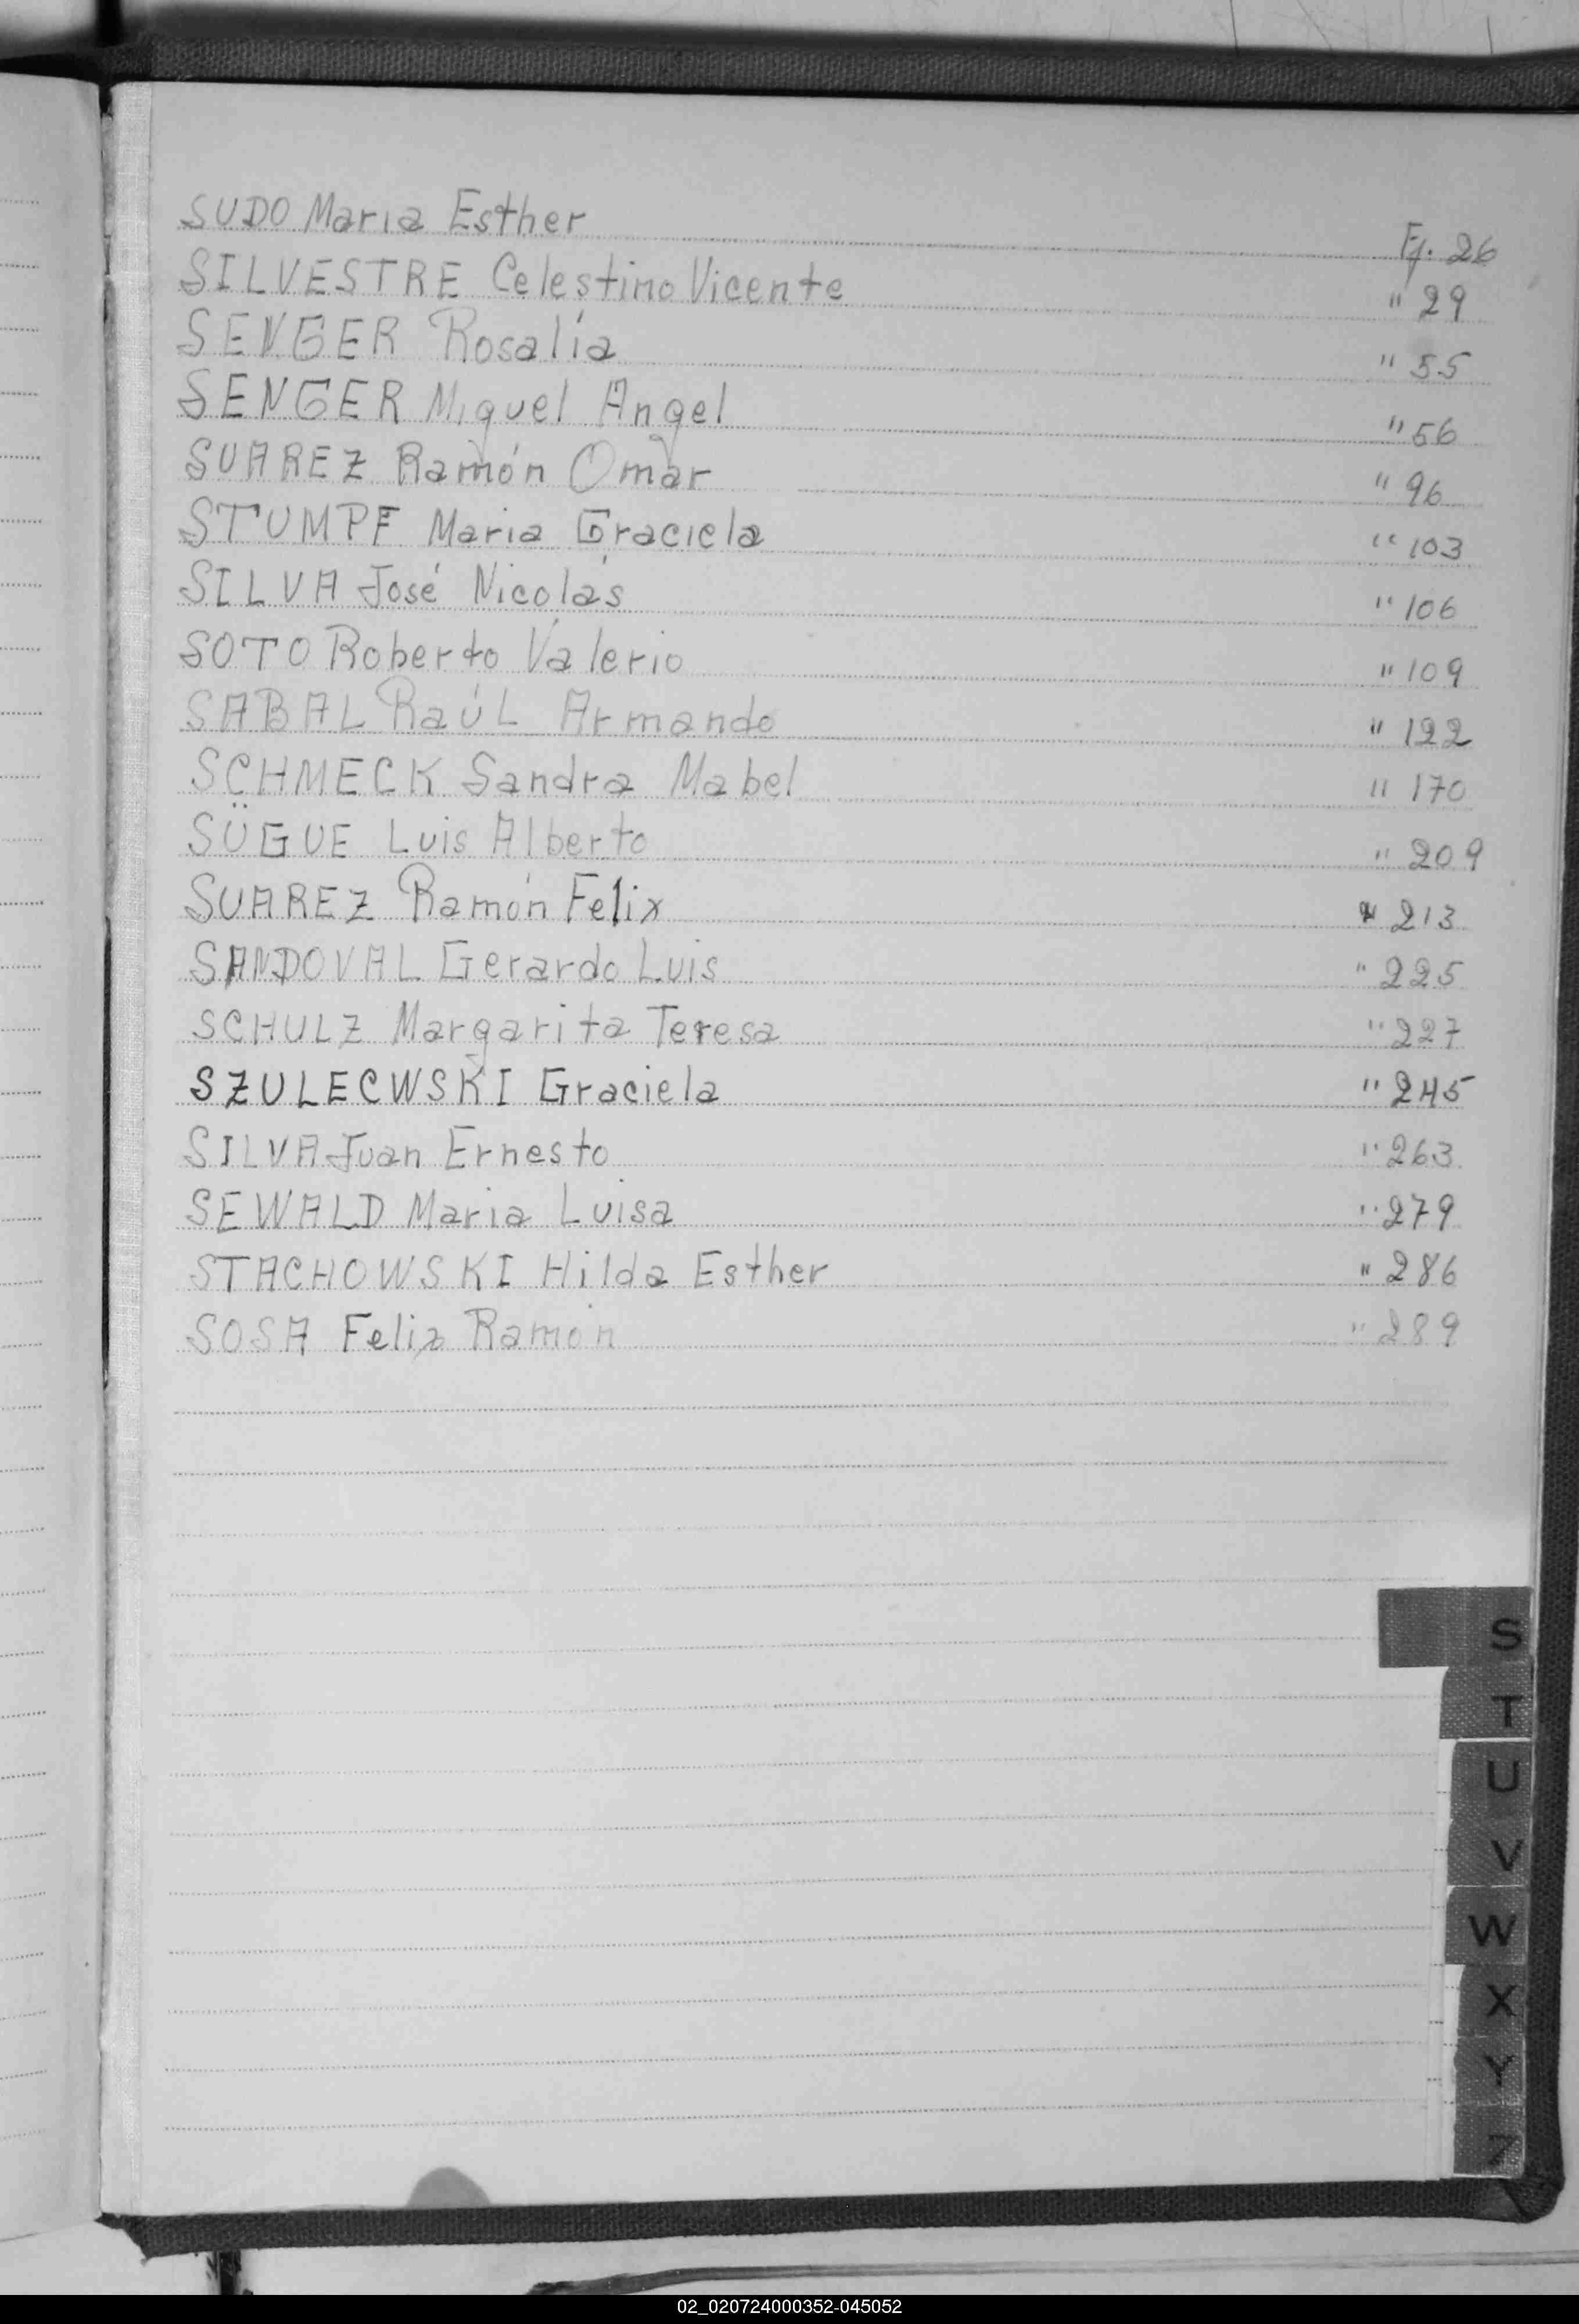 SUDO Maria Esther Fj. 26
SILVESTRE Celestino Vicente " 29
SENGER Rosalía " 55
SENGER Miguel Angel " 56
SUAREZ Ramón Omar " 96
STUMPF Maria Graciela " 103
SILVA José Nicolás " 106
SOTO Roberto Valerio " 109
SABAL RaúL Armando " 122
SCHMECK Sandra Mabel " 170
SÜGUE Luis Alberto " 209
SUAREZ Ramón Felix " 213
SANDOVAL Gerardo Luis " 225
SCHULZ Margarita Teresa " 227
SZULECWSKI Graciela " 245
SILVA Juan Ernesto " 263
SEWALD Maria Luisa " 279
STACHOWSKI Hilda Esther " 286
SOSA Felix Ramón " 289
S
T
U
V
W
X
Y
Z
02_020724000352-045052